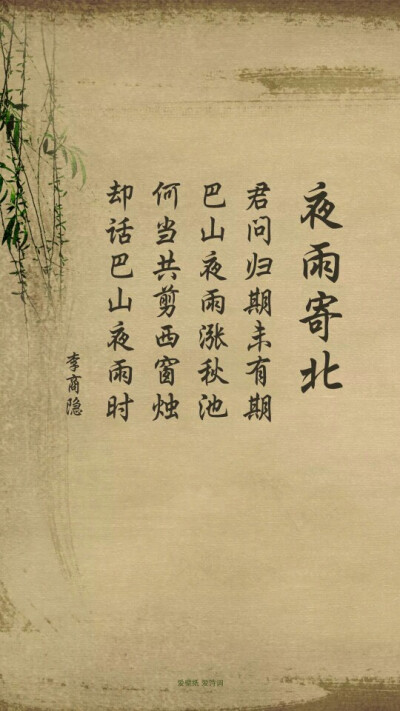 夜雨寄北
君问归期未有期
巴山夜雨涨秋池
何当共剪西窗烛
却话巴山夜雨时
李商隐